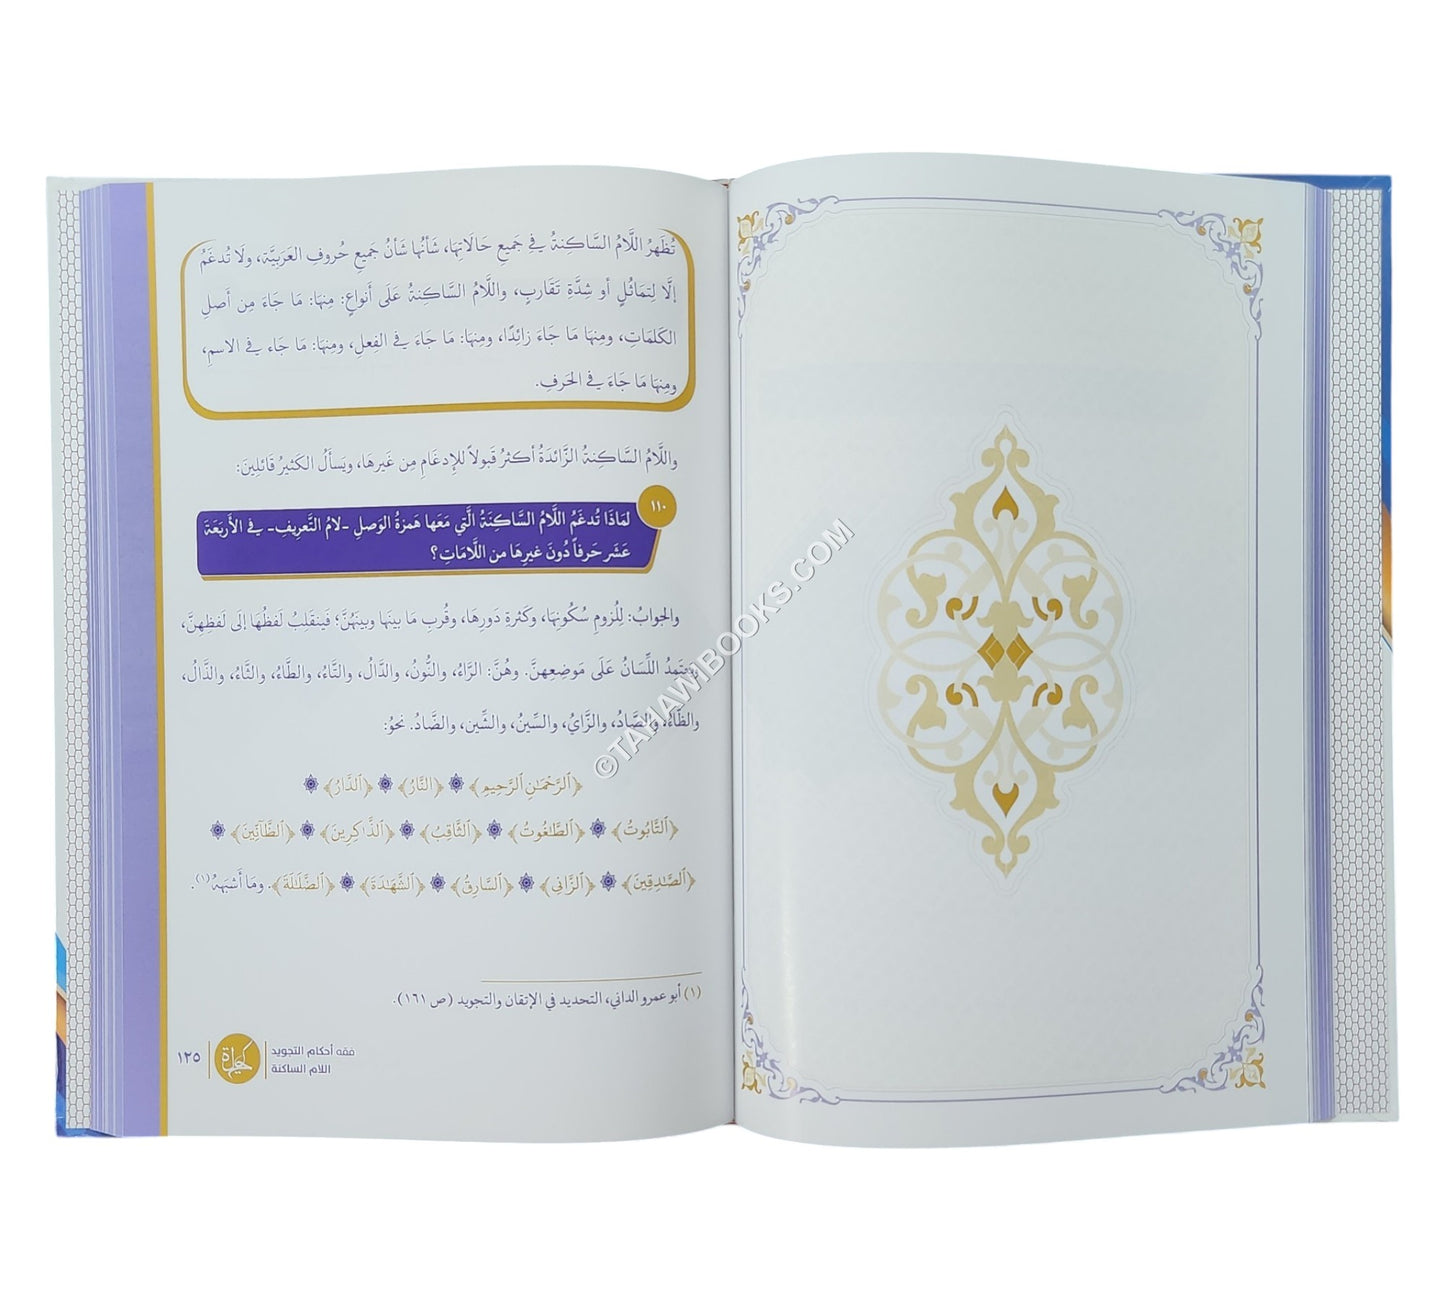 تُظهَرُ اللَّامُ السَّاكِنةُ في جَمِيعِ حَالَاتِهَا، شَأنُها شَأنُ جَمِيعِ حُروفِ العَرَبيَّة، ولَا تُدغَمُ
إلَّا لِتمَاثُلٍ أو شِدَّةِ تَقَاربٍ، واللَّامُ السَّاكِنةُ عَلَى أَنواعٍ: مِنهَا: مَا جَاءَ مِن أَصلِ
الكَلمَاتِ، ومِنهَا مَا جَاءَ زائِدًا، ومِنهَا: مَا جَاءَ في الفِعلِ، ومِنهَا: مَا جَاء في الاسمِ،
ومِنهَا مَا جَاءَ في الحَرفِ.
واللَّامُ السَّاكِنةُ الزَّائدَةُ أكثرُ قَبولاً للإدغَامِ مِن غَيرهَا، ويَسألُ الكَثيرُ قَائِلينَ:
١١٠
لمَاذَا تُدغَمُ اللَّامُ السَّاكِنَةُ الَّتي مَعَها هَمزةُ الوَصلِ -لامُ التَّعريفِ- في الأَربَعَةَ
عَشَر حَرفاً دُونَ غيرِهَا من اللَّامَاتِ؟
والجوابُ: لِلُزومِ سُكُونِهَا، وكَثرةِ دَورِهَا، وقُربِ مَا بينَها وبينَهُنَّ؛ فَينقَلبُ لَفظُهَا إلى لَفظِهنَّ،
ويَعتَمِدُ اللِّسَانُ عَلَى مَوضِعِهنَّ. وهُنَّ: الرَّاءُ، والنُّونُ، والدَّالُ، والتَّاءُ، والطَّاءُ، والثَّاءُ، والذَّالُ،
والظَّاءُ، والصَّادُ، والزَّايُ، والسِّينُ، والشِّين، والضَّادُ. نحوُ:
﴿ٱلرَّحْمَـٰنِ ٱلرَّحِيمِ﴾ ﴿ٱلنَّارُ﴾ ﴿ٱلدَّارُ﴾
﴿ٱلتَّابُوتُ﴾ ﴿ٱلطَّـٰغُوتُ﴾ ﴿ٱلثَّاقِبُ﴾ ﴿ٱلذَّاكِرِينَ﴾ ﴿ٱلظَّآنِّينَ﴾
﴿ٱلصَّـٰدِقِينَ﴾ ﴿ٱلزَّانِي﴾ ﴿ٱلسَّارِقُ﴾ ﴿ٱلشَّهَـٰدَةَ﴾ ﴿ٱلضَّلَـٰلَةَ﴾. ومَا أَشبَهَهُ(١).
(١) أبو عمرو الداني، التحديد في الإتقان والتجويد (ص ١٦١).
فقه أحكام التجويد
اللام الساكنة
١٢٥
©TAHAWIBOOKS.COM